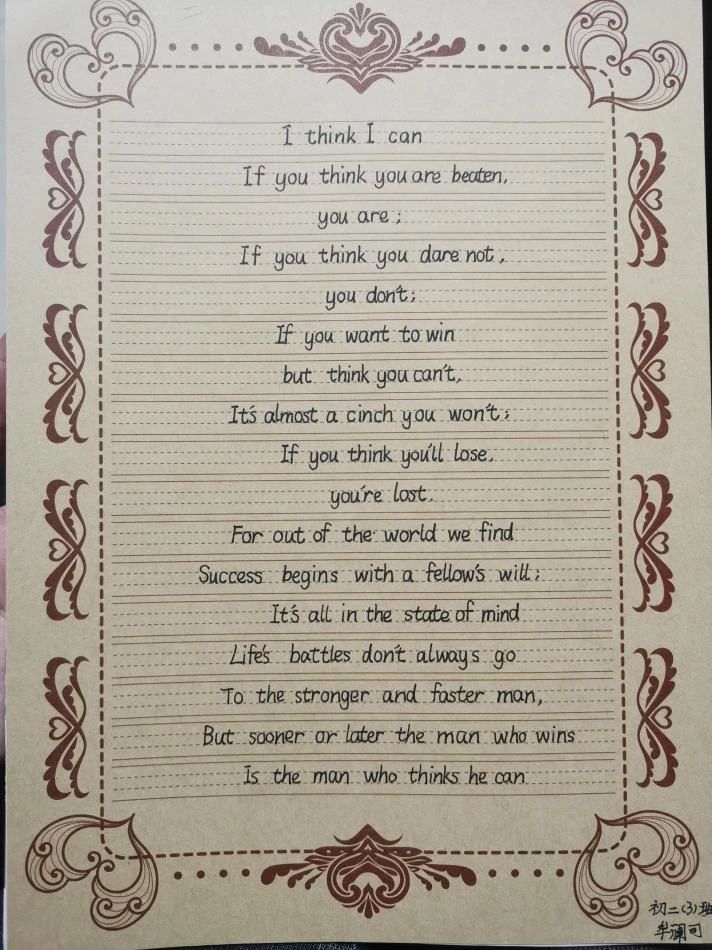 I think I can
If you think you are beaten,
you are ;
If you think you dare not ,
you don't;
If you want to win
but think you can't,
It's almost a cinch you won't;
If you think you'll lose,
you're lost.
For out of the world we find
Success begins with a fellow's will;
It's all in the state of mind
Life's battles don't always go
To the stronger and faster man,
But sooner or later the man who wins
Is the man who thinks he can
初二(3)班
牟澜司